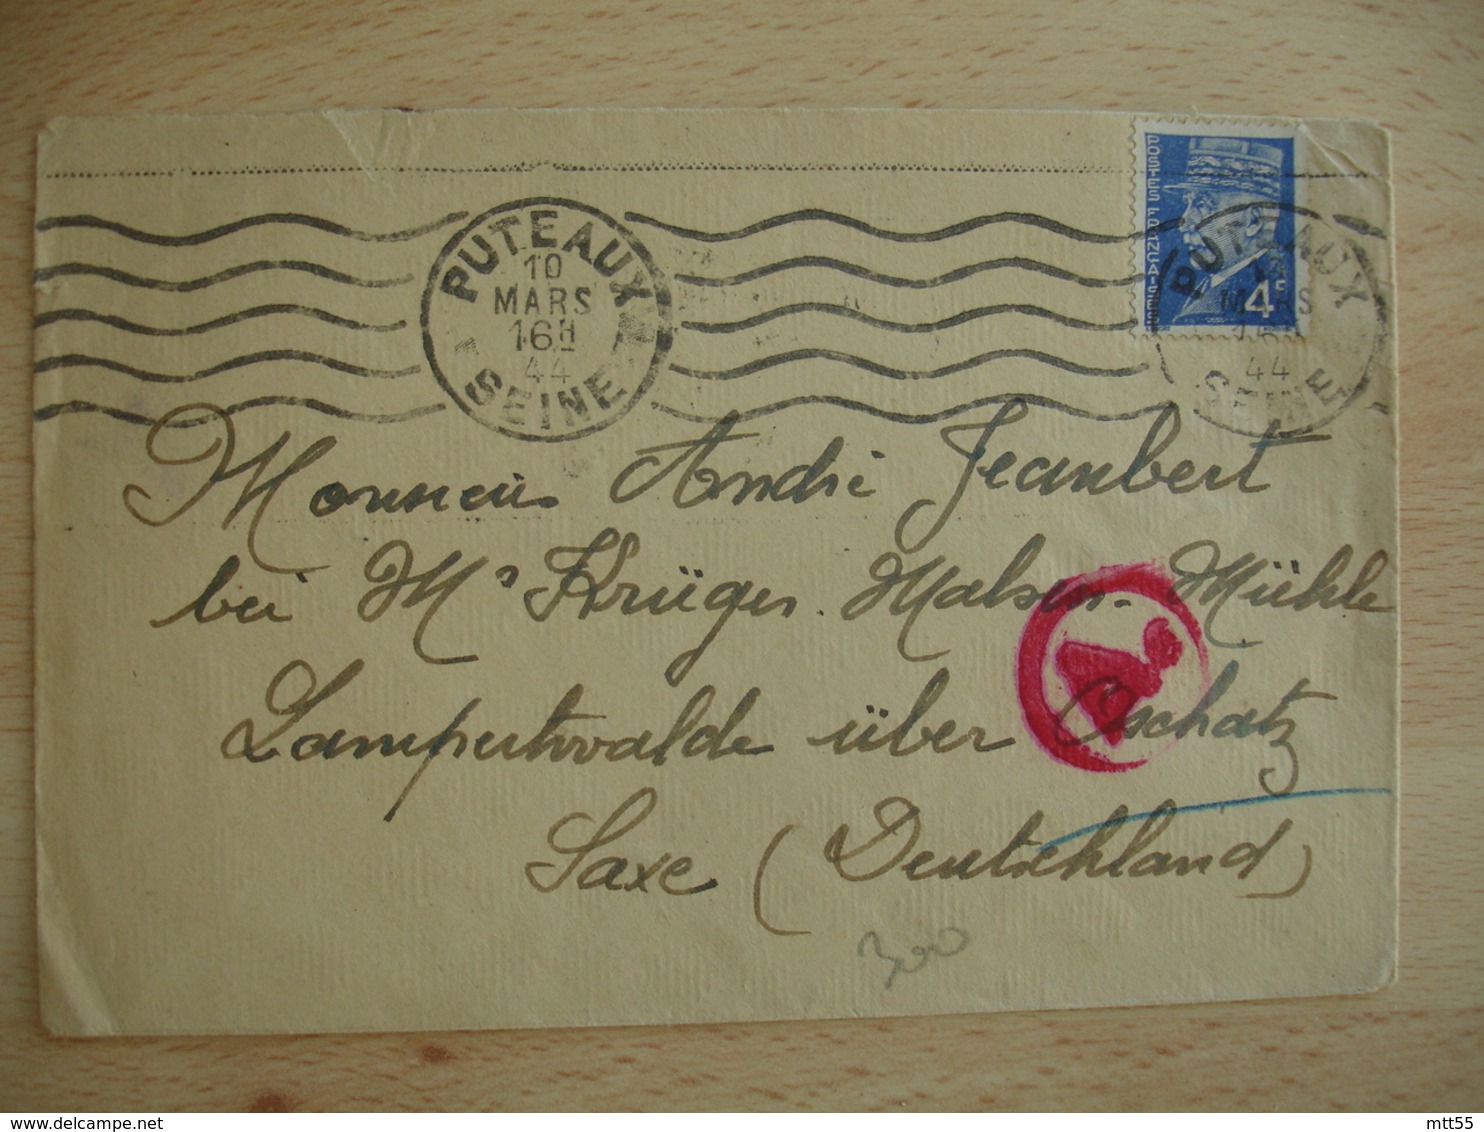 POSTES FRANÇAISES
4F
PUTEAUX
10
MARS
16H
44
SEINE
PUTEAUX
MARS
44
SEINE
Monsieur André Jeanbert
bei Mr Krüger. Malsen-Mühle
Lampertswalde über Oschatz
Saxe (Deutschland)
300
mtt55